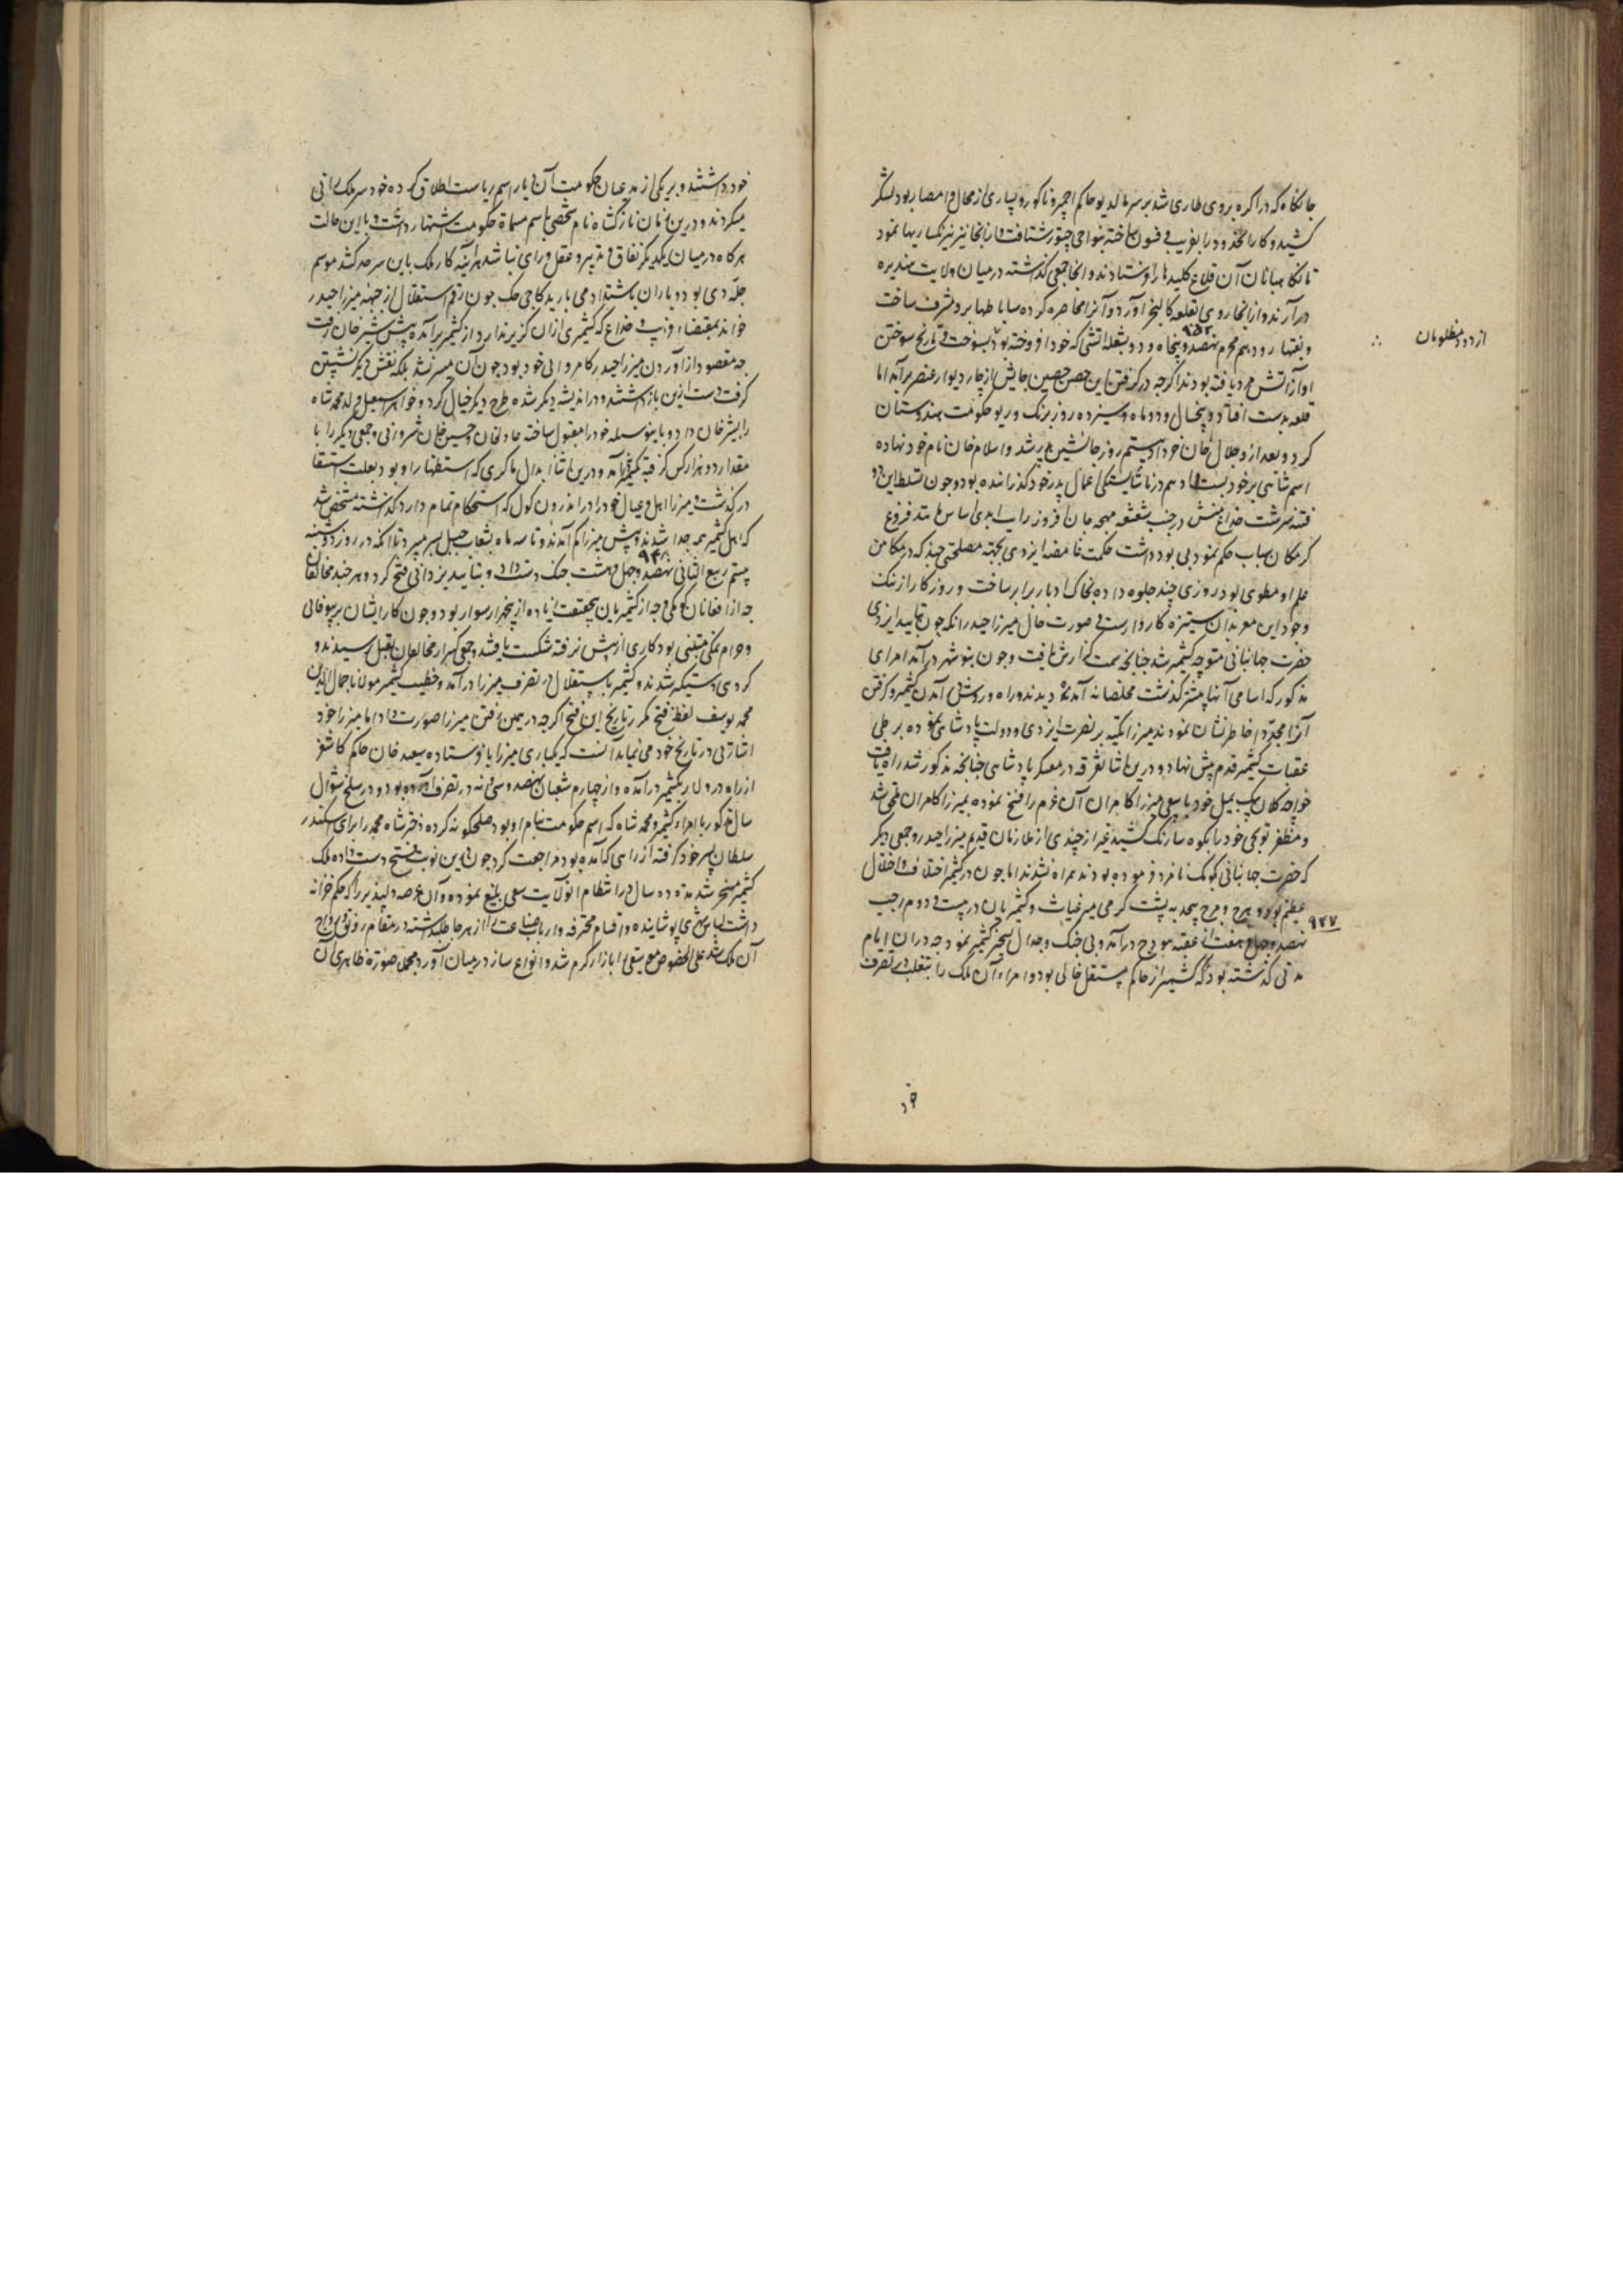 جانکاه که در اکره بروی طاری شد بر سر مالدیو حاکم اجمیر و ناکور و بسیاری از محال و امصار بود لشکر
کشید و کار را بخدود را بفریب و فسون ساخته بنواحی چیتور شتافت و با نجا نیز نیرنک سازیها نمود
تا نکاهبانان آن قلاع کلیدها را فرستادند و انجا جمعی کذاشته در میان ولایت مندیره
درآرند و از انجا روی بقلعه کالنجر آورد و آنرا محاصره کرده ساباطها برد و مشرف ساخت
از دود مظلومان
و بتهار دودهم محرم نهصد و پنجاه و دو بشعله اتشی که خود افروخته بود بسوخت و تاریخ سوختن
۹۵۲
او از آتش مرد یافته بودند اکرجه در کرفتن این حصن حصین جایش از چار دیوار عنصر برآمد اما
قلعه بدست افتاد و پنجسال و دو ماه و سیزده روز برنک و ریو حکومت هندوستان
کرد و بعد از و جلال خان خرد او بیستم روز جانشین پدر شد و اسلام خان نام خود نهاده
اسم شاهی بر خود بست و او هم در ناشایستکی اعمال پدر خود کذرانده بود و جون تسلط این دو
فتنه سرشت خداع منش در جنب شعشعه مهجه جان افروز رایت ابدی اساس مانند فروغ
کرمکان بیاب حکم نمود بی بود داشت حکمت غامضه ایزدی بجهته مصلحتی جند که در مکامن
علم او مطوی بود روزی چند جلوه داده بخاک ادبار برابر ساخت و روزکار از ننک
وجود این معربدان ستیزه کار وارست و صورت حال میرزا حیدر انکه جون بتایید ایزدی
حضرت جهانبانی متوجه کشمیر شد جنانجه سمت کذارش یافت و جون بنوشهر درآمد امرای
مذکور که اسامی آنها پیشتر کذشت مخلصانه آمده دیدند و راه و روش آمدن کشمیر و کرفتن
آنرا مجددا خاطرنشان نمودند میرزا تکیه بر نصرت ایزدی و دولت پادشاهی نموده بر طی
عقبات کشمیر قدم پیش نهاد و درین اثنا تفرقه در معسکر پادشاهی جنانجه مذکور شد راه یافت
خواجه کلان بیک بمیل خود یا سعی میرزا کامران آن عزم را فسخ نموده بمیرزا کامران ملحق شد
و مظفر توبچی خود را بکوه سارنک کشید غیر از چندی از ملازمان قدیم میرزا حیدر و جمعی دیکر
که حضرت جهانبانی بکومک نامزد فرموده بودند همراه نشدند اما جون در کشمیر اختلاف و اختلال
عظیم بود و هرج و مرج بیحد به پشت کرمی میر غیاث و کشمیریان در بیست و دوم رجب
۹۴۷
نهصد و جهل و هفت از عقبه پونج درآمد و بی جنک و جدال تسخیر کشمیر نمود جه در ان ایام
مدتی کذشته بود که کشمیر از حاکم مستقل خالی بود و امراء آن ملک را بتغلب در تصرف
خود
خود داشتند و بر یکی از مدعیان حکومت آن دیار اسم ریاست اطلاق کرده خود سر ملک رانی
میکردند و درین زمان نازک شاه نام شخصی باسم مسماة حکومت اشتهار داشت و با این حالت
هرکاه در میان یکدیکر نفاق و تدبیر و عقل و رای نباشد هرآئینه کار ملک باین سرحد کشد موسم
جله دی بود و باران باشتداد می بارید کاجی جک جون رقم استقلال از جبهه میرزا حیدر
خواند بمقتضاء فریب و خداع که کشمیری از ان کزیر ندارد از کشمیر برآمده پیش شیر خان رفت
جه مقصود از آوردن میرزا حیدر کامروائی خود بود جون آن میسر نشد بلکه نقش دیکر نشستن
کرفت دست ازین بازداشتند و در اندیشه دیکر شده طرح دیکر خیال کرد و خواهر اسمعیل ولد محمد شاه
را بشیر خان داد و باین وسیله خود را مقبول ساخته عادل خان و حسین خان شروانی و جمعی دیکر را با
مقدار دو هزار کس کرفته بکشمیر آمد و درین اثنا ابدال ماکری که استظهار او بود بعلت استسقا
درکذشت و میرزا اهل و عیال خود را در اندرون کول که استحکام تمام دارد کذاشته متحصن شد
که اهل کشمیر همه جدا شدند و پیش میرزا کم آمدند و تا سه ماه بشعاب جبل بسر میبرد تا آنکه در روز دوشنبه
بیستم ربیع الثانی نهصد و جهل و هشت جنک دست داد و بتایید یزدانی فتح کرد و هر جند مخالفان
۹۴۸
جه از افغانان کومکی و جه از کشمیریان بیحقیقت زیاده از پنجهزار سوار بود و جون کار ایشان بر بیوفائی
و حرام نمکی مبتنی بود کاری از پیش نرفته شکست یافتند و جمعی کثیر از مخالفان بقتل رسیدند و
کردی دستیکر شدند و کشمیر باستقلال در تصرف میرزا درآمد و خطیب کشمیر مولانا جمال الدین
محمد یوسف لفظ فتح مکرر تاریخ این فتح اکرجه در یمین رفتن میرزا صورت داد اما میرزا خود
اشارتی در تاریخ خود می نماید آنست که یکباری میرزا را فرستاده سعید خان حاکم کاشغر
از راه در و لار بکشمیر درآمده و از چهارم شعبان نهصد و سی و نه در تصرف آورده بود و در سلخ شوال
سال مذکور با امراء کشمیر و محمد شاه که اسم حکومت بنام او بود صلحکونه کرده دختر شاه محمد را برای اسکندر
سلطان پسر خود کرفته از راهی که آمده بود مراجعت کرد جون این نوبت فتح دست داده ملک
کشمیر مسخر شد مدت ده سال در انتظام آن ولایت سعی بلیغ نموده و آن عرصه دلپذیر را که حکم خرابه
داشت لباس شهری پوشانیده و اقسام محترفه و ارباب صناعت را از هر جا طلب داشته در مقام رونق و رواج
آن ملک شد علی الخصوص موسیقی را بازار کرم شد و انواع ساز در میان آورد مجملا صورت ظاهری آن